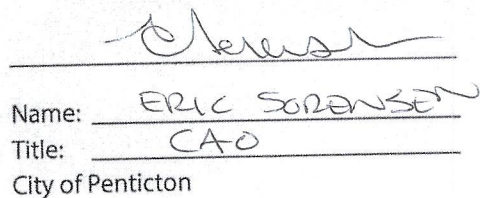 Name: ERIC SORENSEN
Title: CAO
City of Penticton